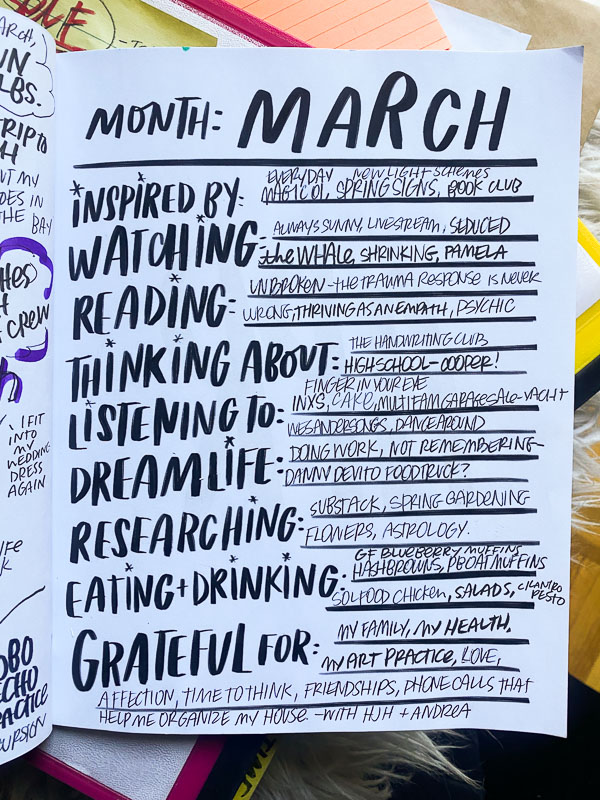 MONTH: MARCH
INSPIRED BY:
EVERYDAY NEW LIGHT SCHEMES
MAGIC 01, SPRING SIGNS, BOOK CLUB
WATCHING:
ALWAYS SUNNY, LIVESTREAM, SEDUCED
the WHALE, SHRINKING, PAMELA
READING:
UNBROKEN - the TRAUMA RESPONSE IS NEVER
WRONG, THRIVING AS AN EMPATH, PSYCHIC
THINKING ABOUT:
THE HANDWRITING CLUB
HIGHSCHOOL - COOPER!
LISTENING TO:
FINGER IN YOUR EYE
INXS, CAKE, MULTI FAM GARAGE SALE - YACHT
WES ANDERSONGS, DANCE AROUND
DREAM LIFE:
DOING WORK, NOT REMEMBERING -
DANNY DEVITO FOOD TRUCK?
RESEARCHING:
SUBSTACK, SPRING GARDENING
FLOWERS, ASTROLOGY.
EATING + DRINKING:
GF BLUEBERRY MUFFINS
HASHBROWNS, PB OAT MUFFINS
SOLFOOD CHICKEN, SALADS, CILANTRO
PESTO
GRATEFUL FOR:
MY FAMILY, MY HEALTH,
MY ART PRACTICE, LOVE,
AFFECTION, TIME TO THINK, FRIENDSHIPS, PHONE CALLS THAT
HELP ME ORGANIZE MY HOUSE. - WITH HJH + ANDREA
ARCH,
LBS.
TRIP to
MY
IN
THE BAY
CREW
I FIT
INTO
MY
WEDDING
DRESS
AGAIN